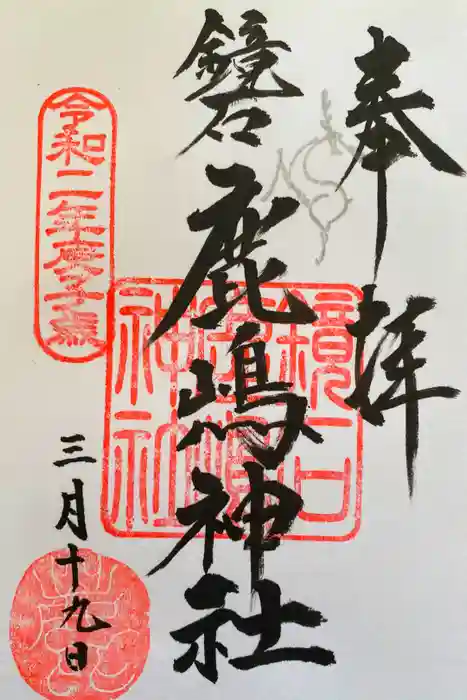 奉拝
鏡石
鹿嶋神社
令和二年庚子歳
三月十九日
鏡石鹿嶋神社